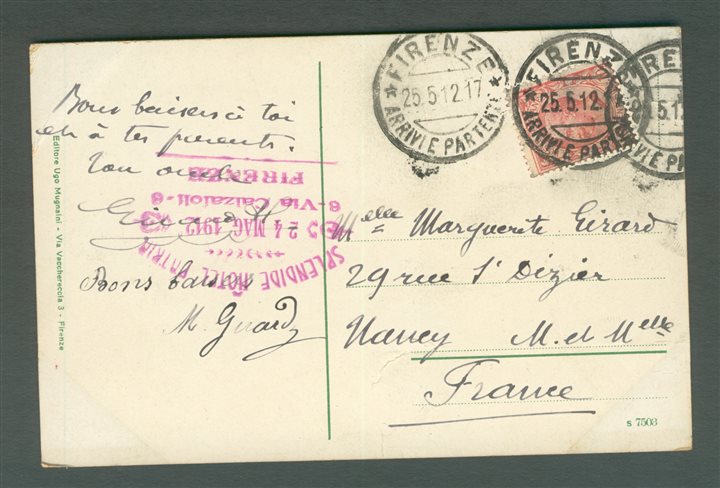 Bons baisers à toi
et à tes parents.
Ton oncle
Bons baisers
M. Girard
Editore Ugo Mugnaini - Via Vacchereccia 3 - Firenze
SPLENDIDE HÔTEL PATRIA
24 MAG. 1912
6-Via Calzaioli-6
FIRENZE
FIRENZE
25.5.12.17
ARRIVI E PARTENZE
FIRENZE
25.5.12
ARRIVI E PARTE
FIRENZE
25.5.12
VI E PA
Melle Marguerite Girard
29 rue St Dizier
Nancy M. et Melle
France
s 7503